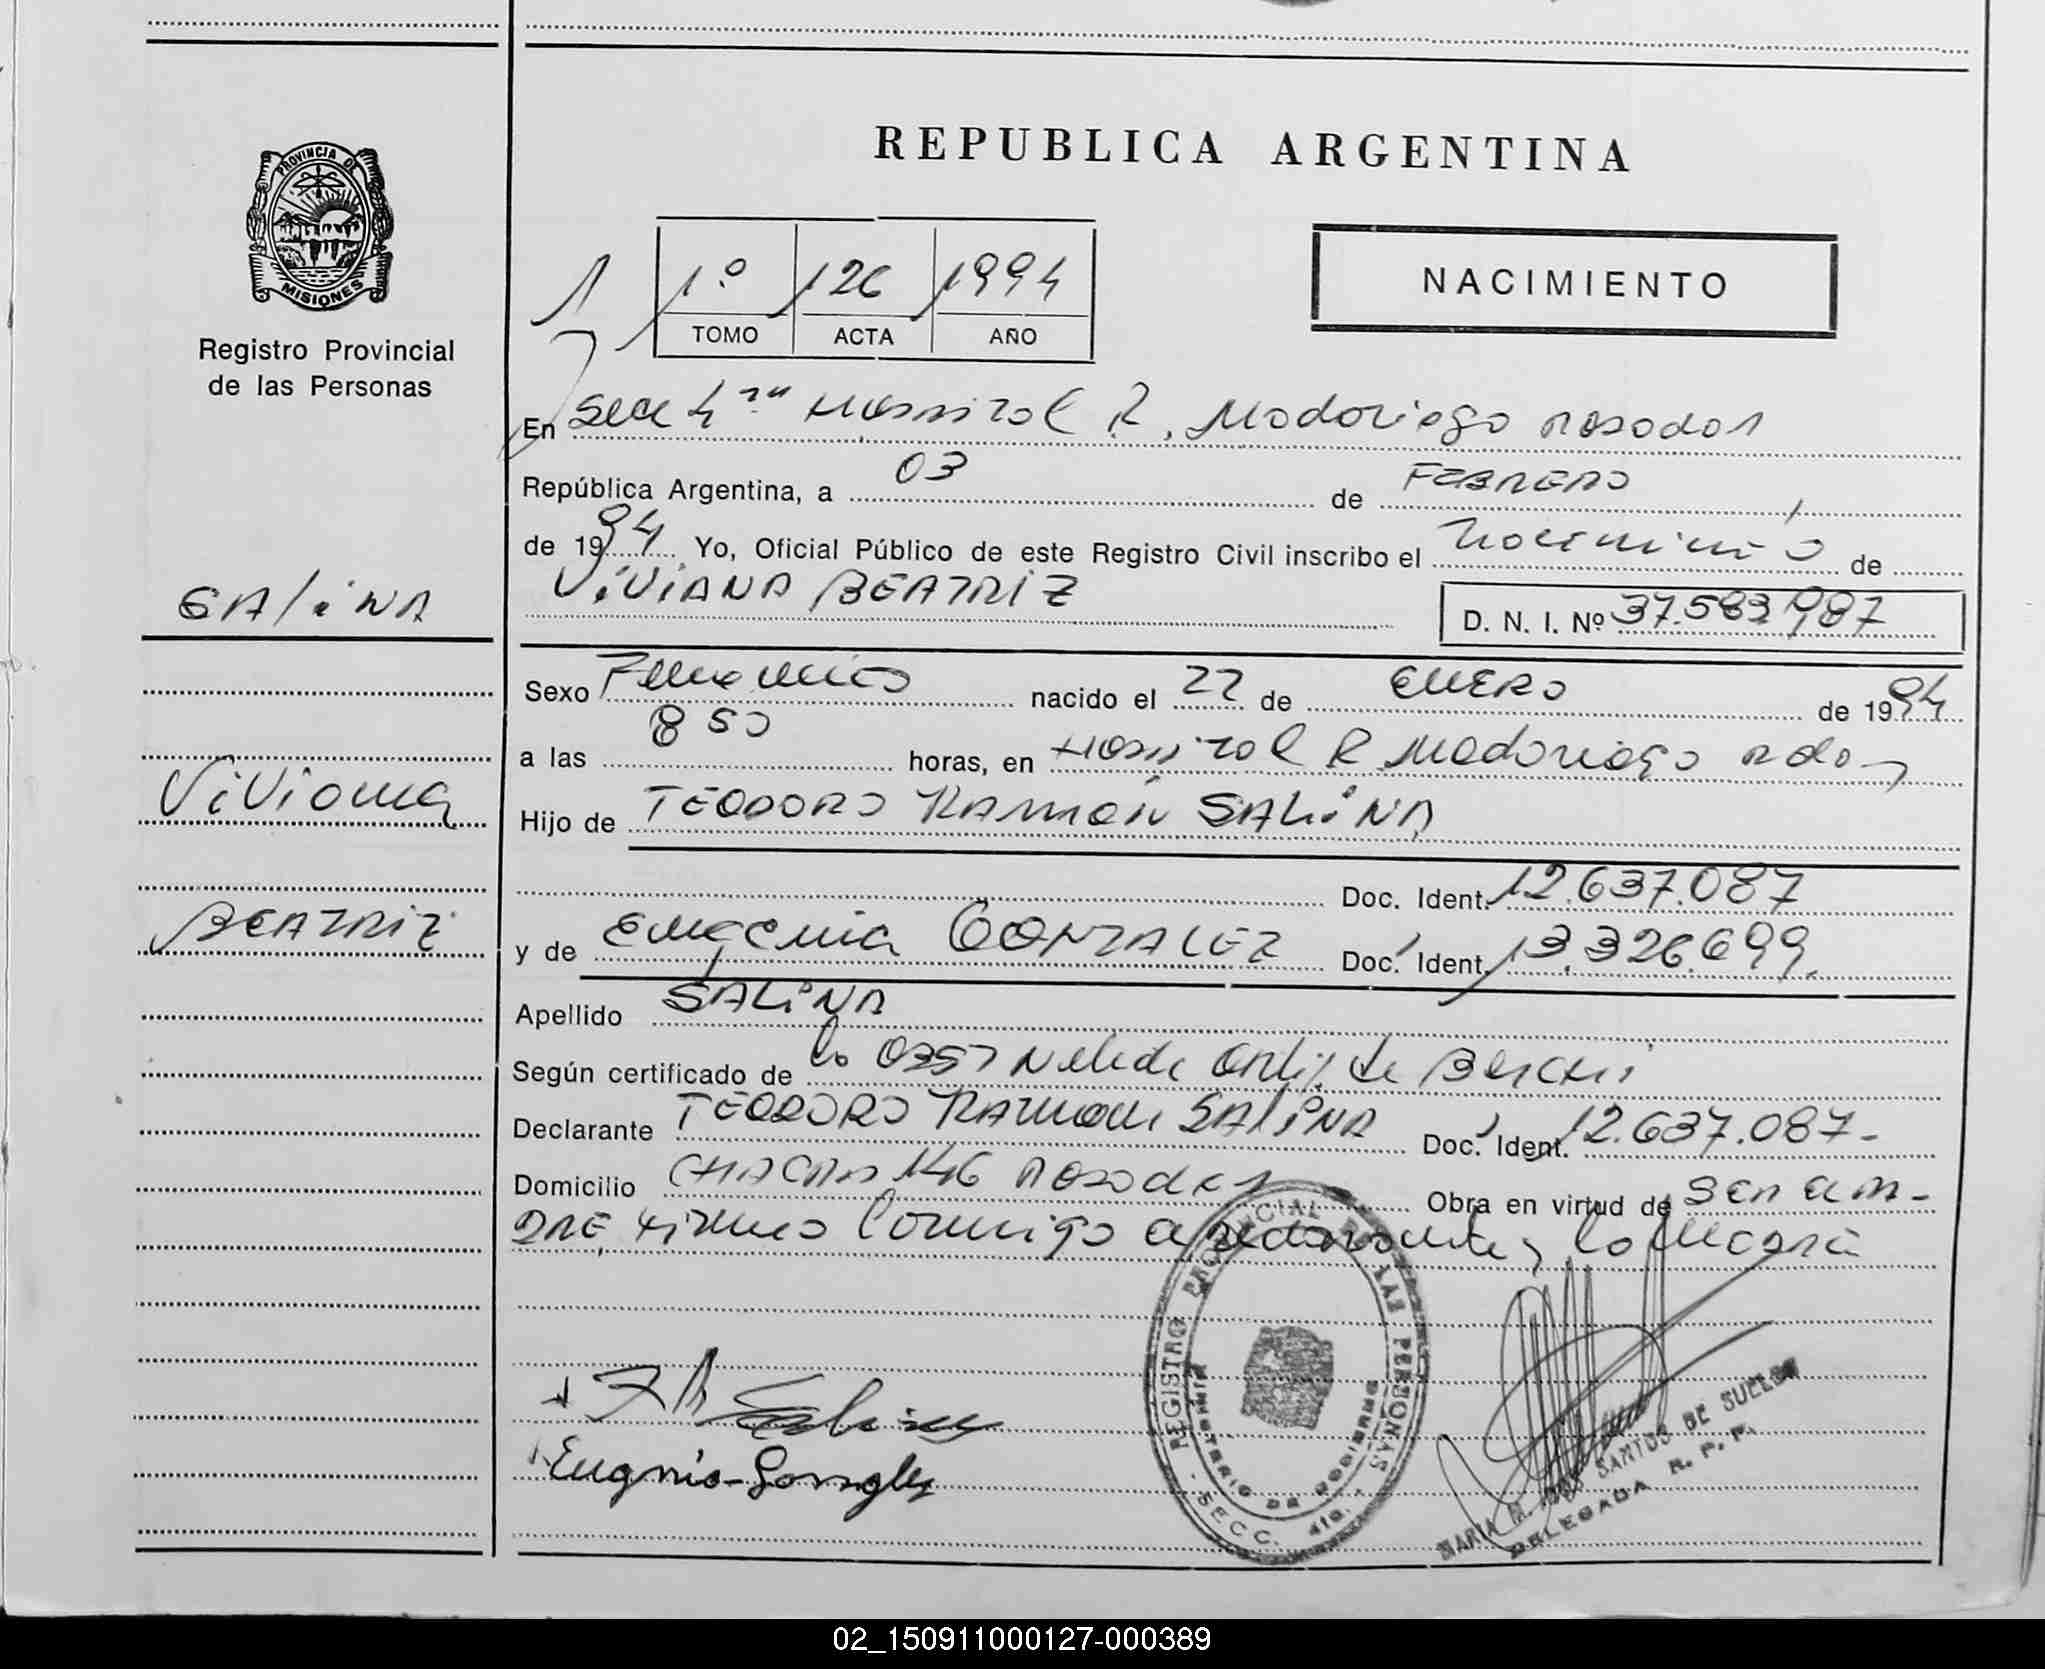 REPUBLICA ARGENTINA
PROVINCIA DE
MISIONES
Registro Provincial
de las Personas
NACIMIENTO
1 1º 126 1994
TOMO ACTA AÑO
En Secc 4ta Hospital R. Madariaga Posadas
República Argentina, a 03 de FEBRERO
de 1994 Yo, Oficial Público de este Registro Civil inscribo el nacimiento de
VIVIANA BEATRIZ D. N. I. Nº 37.583.987
SALINA
Sexo Femenino nacido el 22 de ENERO de 1994
a las 8 50 horas, en Hospital R Madariaga Pdas
Viviana
Hijo de TEODORO RAMON SALINA
Doc. Ident. 12.637.087
BEATRIZ
y de Eugenia GONZALEZ Doc. Ident. 13.326.699
Apellido SALINA
Según certificado de la Obst Nelida Ortiz de
Declarante TEODORO RAMON SALINA Doc. Ident. 12.637.087-
Domicilio CHACRA 146 Posadas Obra en virtud de SER EL PA-
DRE, firma conmigo el declarante y la
REGISTRO PROVINCIAL DE LAS PERSONAS
MINISTERIO DE GOBIERNO
- SECC. 4ta. -
Salina
Eugenia Gonzalez
MARIA M. SANTOS DE SUELDO
DELEGADA R. P. P.
02_150911000127-000389